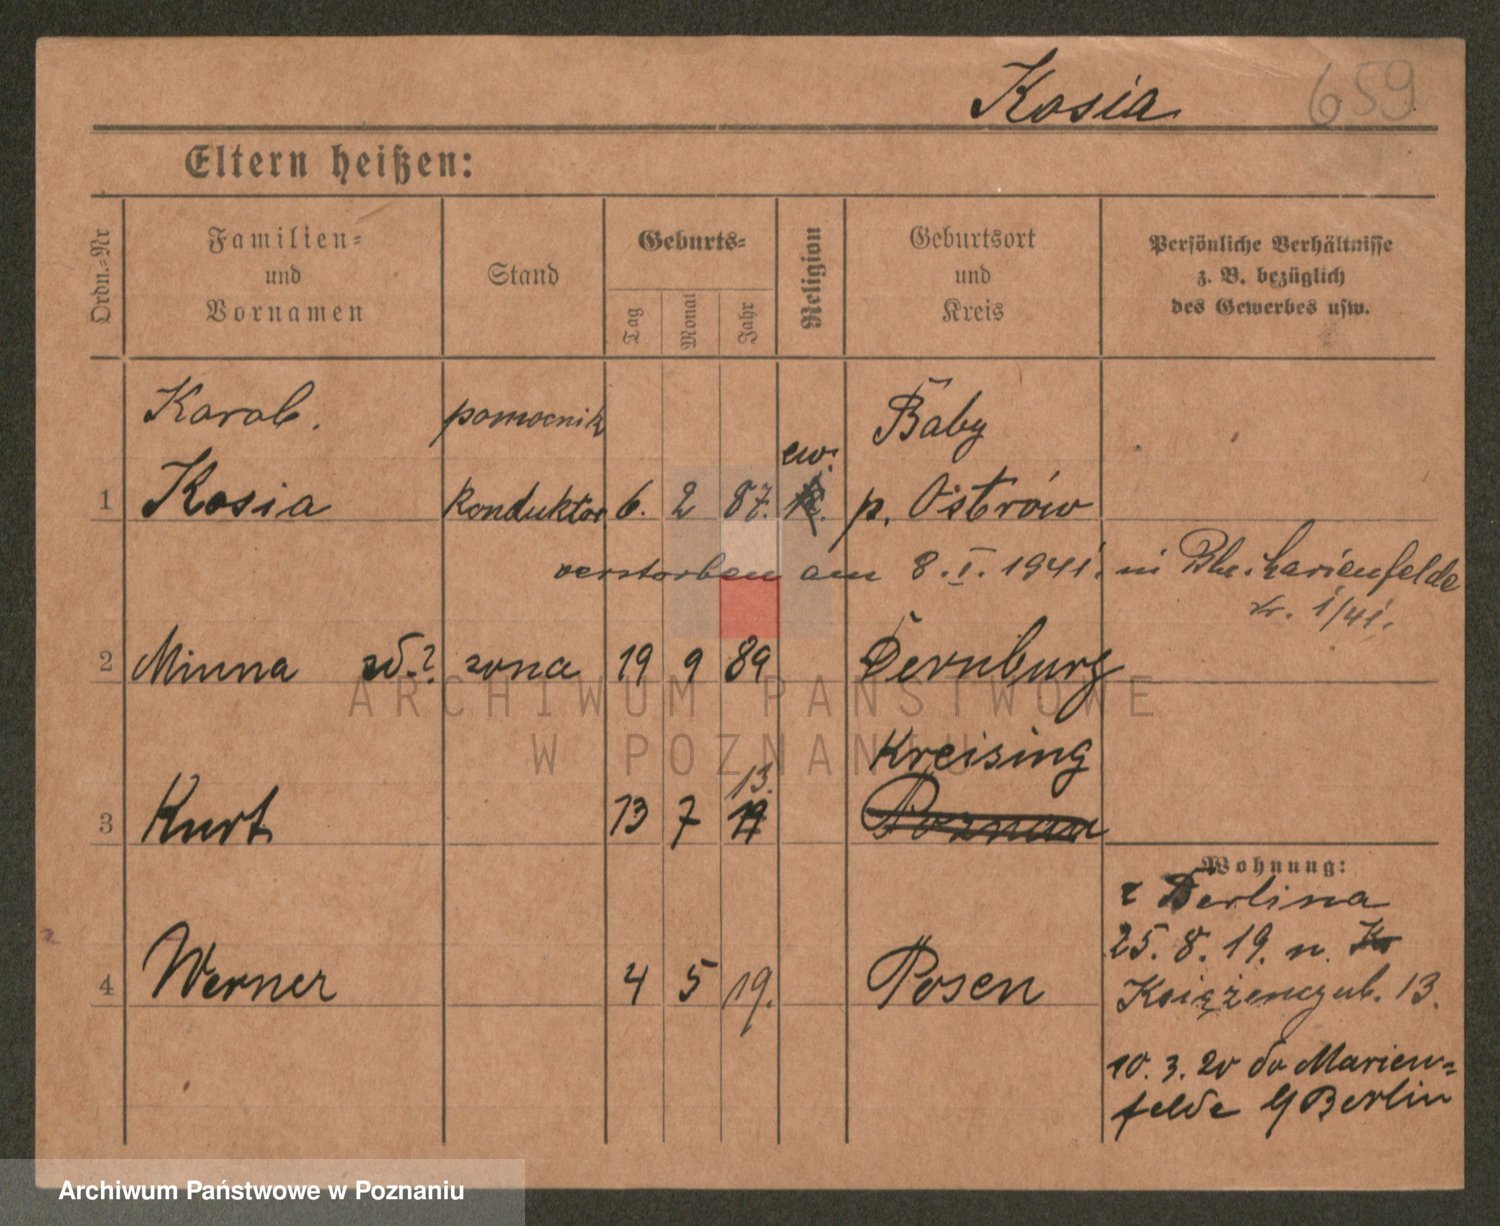 Kosia 659
Eltern heißen:
Ordn.=Nr
Familien=
und
Vornamen
Stand
Geburts=
Tag
Monat
Jahr
Religion
Geburtsort
und
Kreis
Persönliche Verhältnisse
z. B. bezüglich
des Gewerbes usw.
Karol. pomocnik Baby
ew.
1 Kosia konduktor 6. 2 87. p. Ostrów
verstorben am 8. I. 1941. in Marienfelde
Nr. 1/41.
2 Minna zd.? zona 19 9 89 Dernburg
Kreising
13.
3 Kurt 13 7 Poznan
Wohnung:
z Berlina
25. 8. 19. n.
4 Werner 4 5 19. Posen
13.
10. 3. 20 do Marien=
felde Berlin
ARCHIWUM PAŃSTWOWE
W POZNANIU
Archiwum Państwowe w Poznaniu